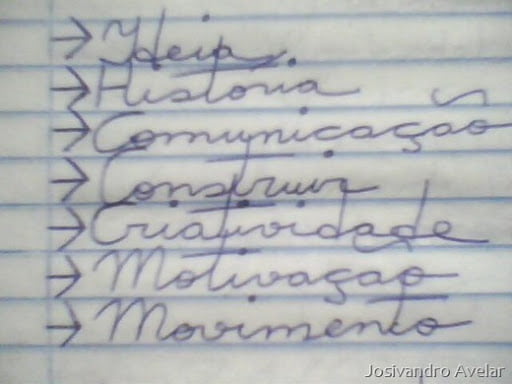 → Ideia
→ História
→ Comunicação
→ Construir
→ Criatividade
→ Motivação
→ Movimento
Josivandro Avelar